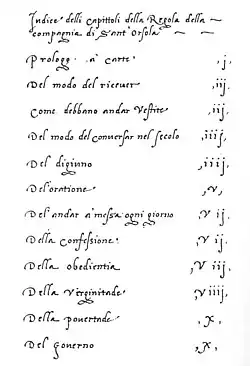 Indice delli Capittoli della Regola della
compagnia di Sant' Orsola
Prologo a' carte ,j.
Del modo del riceuer ,iij.
Come debbano andar Vestite ,iij.
Del modo del conuersar nel secolo ,iiij.
Del digiuno ,iiij.
Del'oratione ,V,
Del'andar a' messa ogni giorno ,V ij.
Della Confessione ,V ij.
Della obedientia ,V iij.
Della Verginitade ,V iiij.
Della pouertade ,X,
Del gouerno ,X,